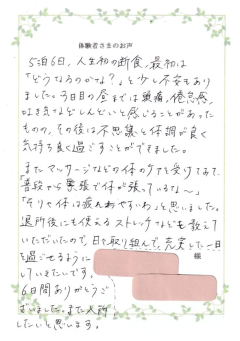 体験者さまのお声
5泊6日、人生初の断食、最初は
「どうなるのかな?」と少し不安もあり
ました。3日目の昼までは頭痛、倦怠感、
吐き気などしんどいと感じることがあった
ものの、その後は不思議と体調が良く
気持ち良く過ごすことができました。
またマッサージなどの体のケアを受けてみて、
「普段から緊張で体が張っているな〜」
「今りゃ体は疲れわやすいわ」と思いました。
退所後にも使えるストレッチなども教えて
いただいたので、日々取り組んで、充実した一日
を過ごせるように
していきたいです。
様
6日間ありがとうご
ざいました。また入所
したいと思います。